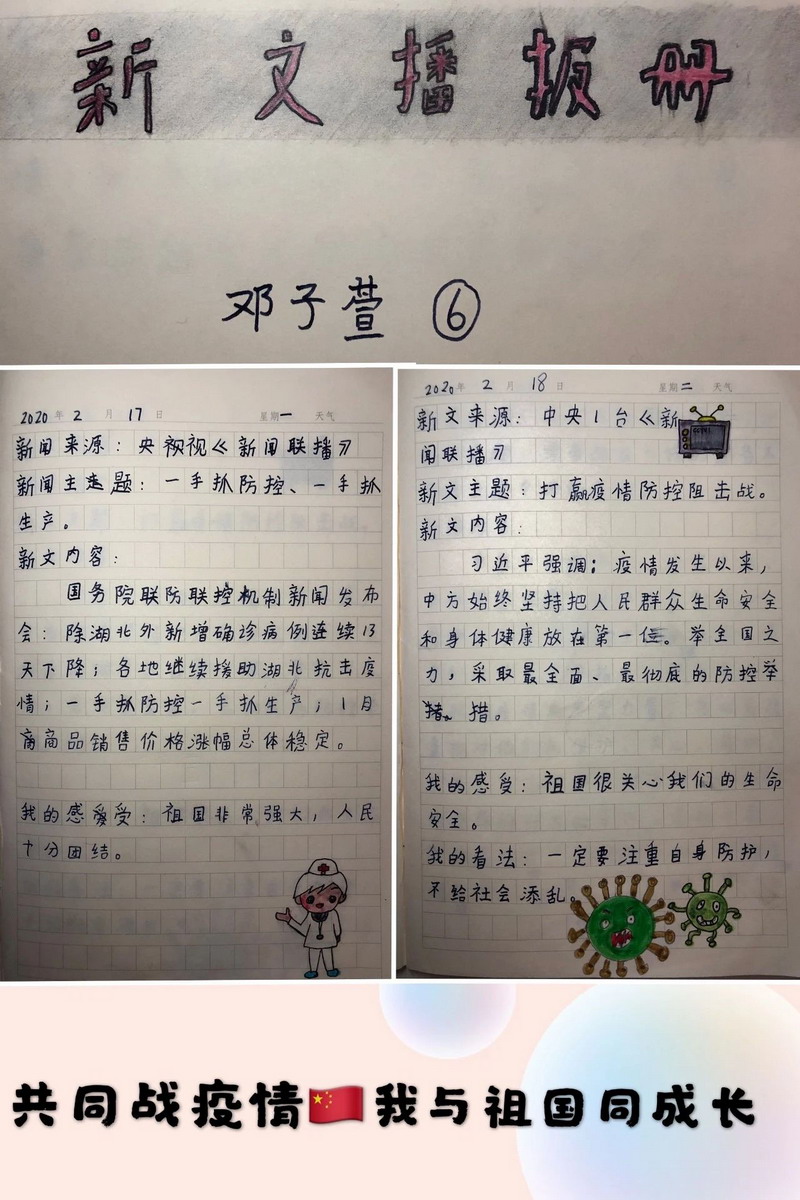 新文播报册
邓子萱 ⑥
2020年 2月 17日 星期一 天气
新闻来源：央视《新闻联播》
新闻主题：一手抓防控、一手抓
生产。
新文内容：
国务院联防联控机制新闻发布
会：除湖北外新增确诊病例连续13
天下降；各地继续援助湖北抗击疫
情；一手抓防控一手抓生产；1月
商品销售价格涨幅总体稳定。
我的感受：祖国非常强大，人民
十分团结。
2020年 2月 18日 星期二 天气
新文来源：中央1台《新
闻联播》
新文主题：打赢疫情防控阻击战。
新文内容：
习近平强调：疫情发生以来，
中方始终坚持把人民群众生命安全
和身体健康放在第一位。举全国之
力，采取最全面、最彻底的防控举
措。
我的感受：祖国很关心我们的生命
安全。
我的看法：一定要注重自身防护，
不给社会添乱。
共同战疫情🇨🇳我与祖国同成长